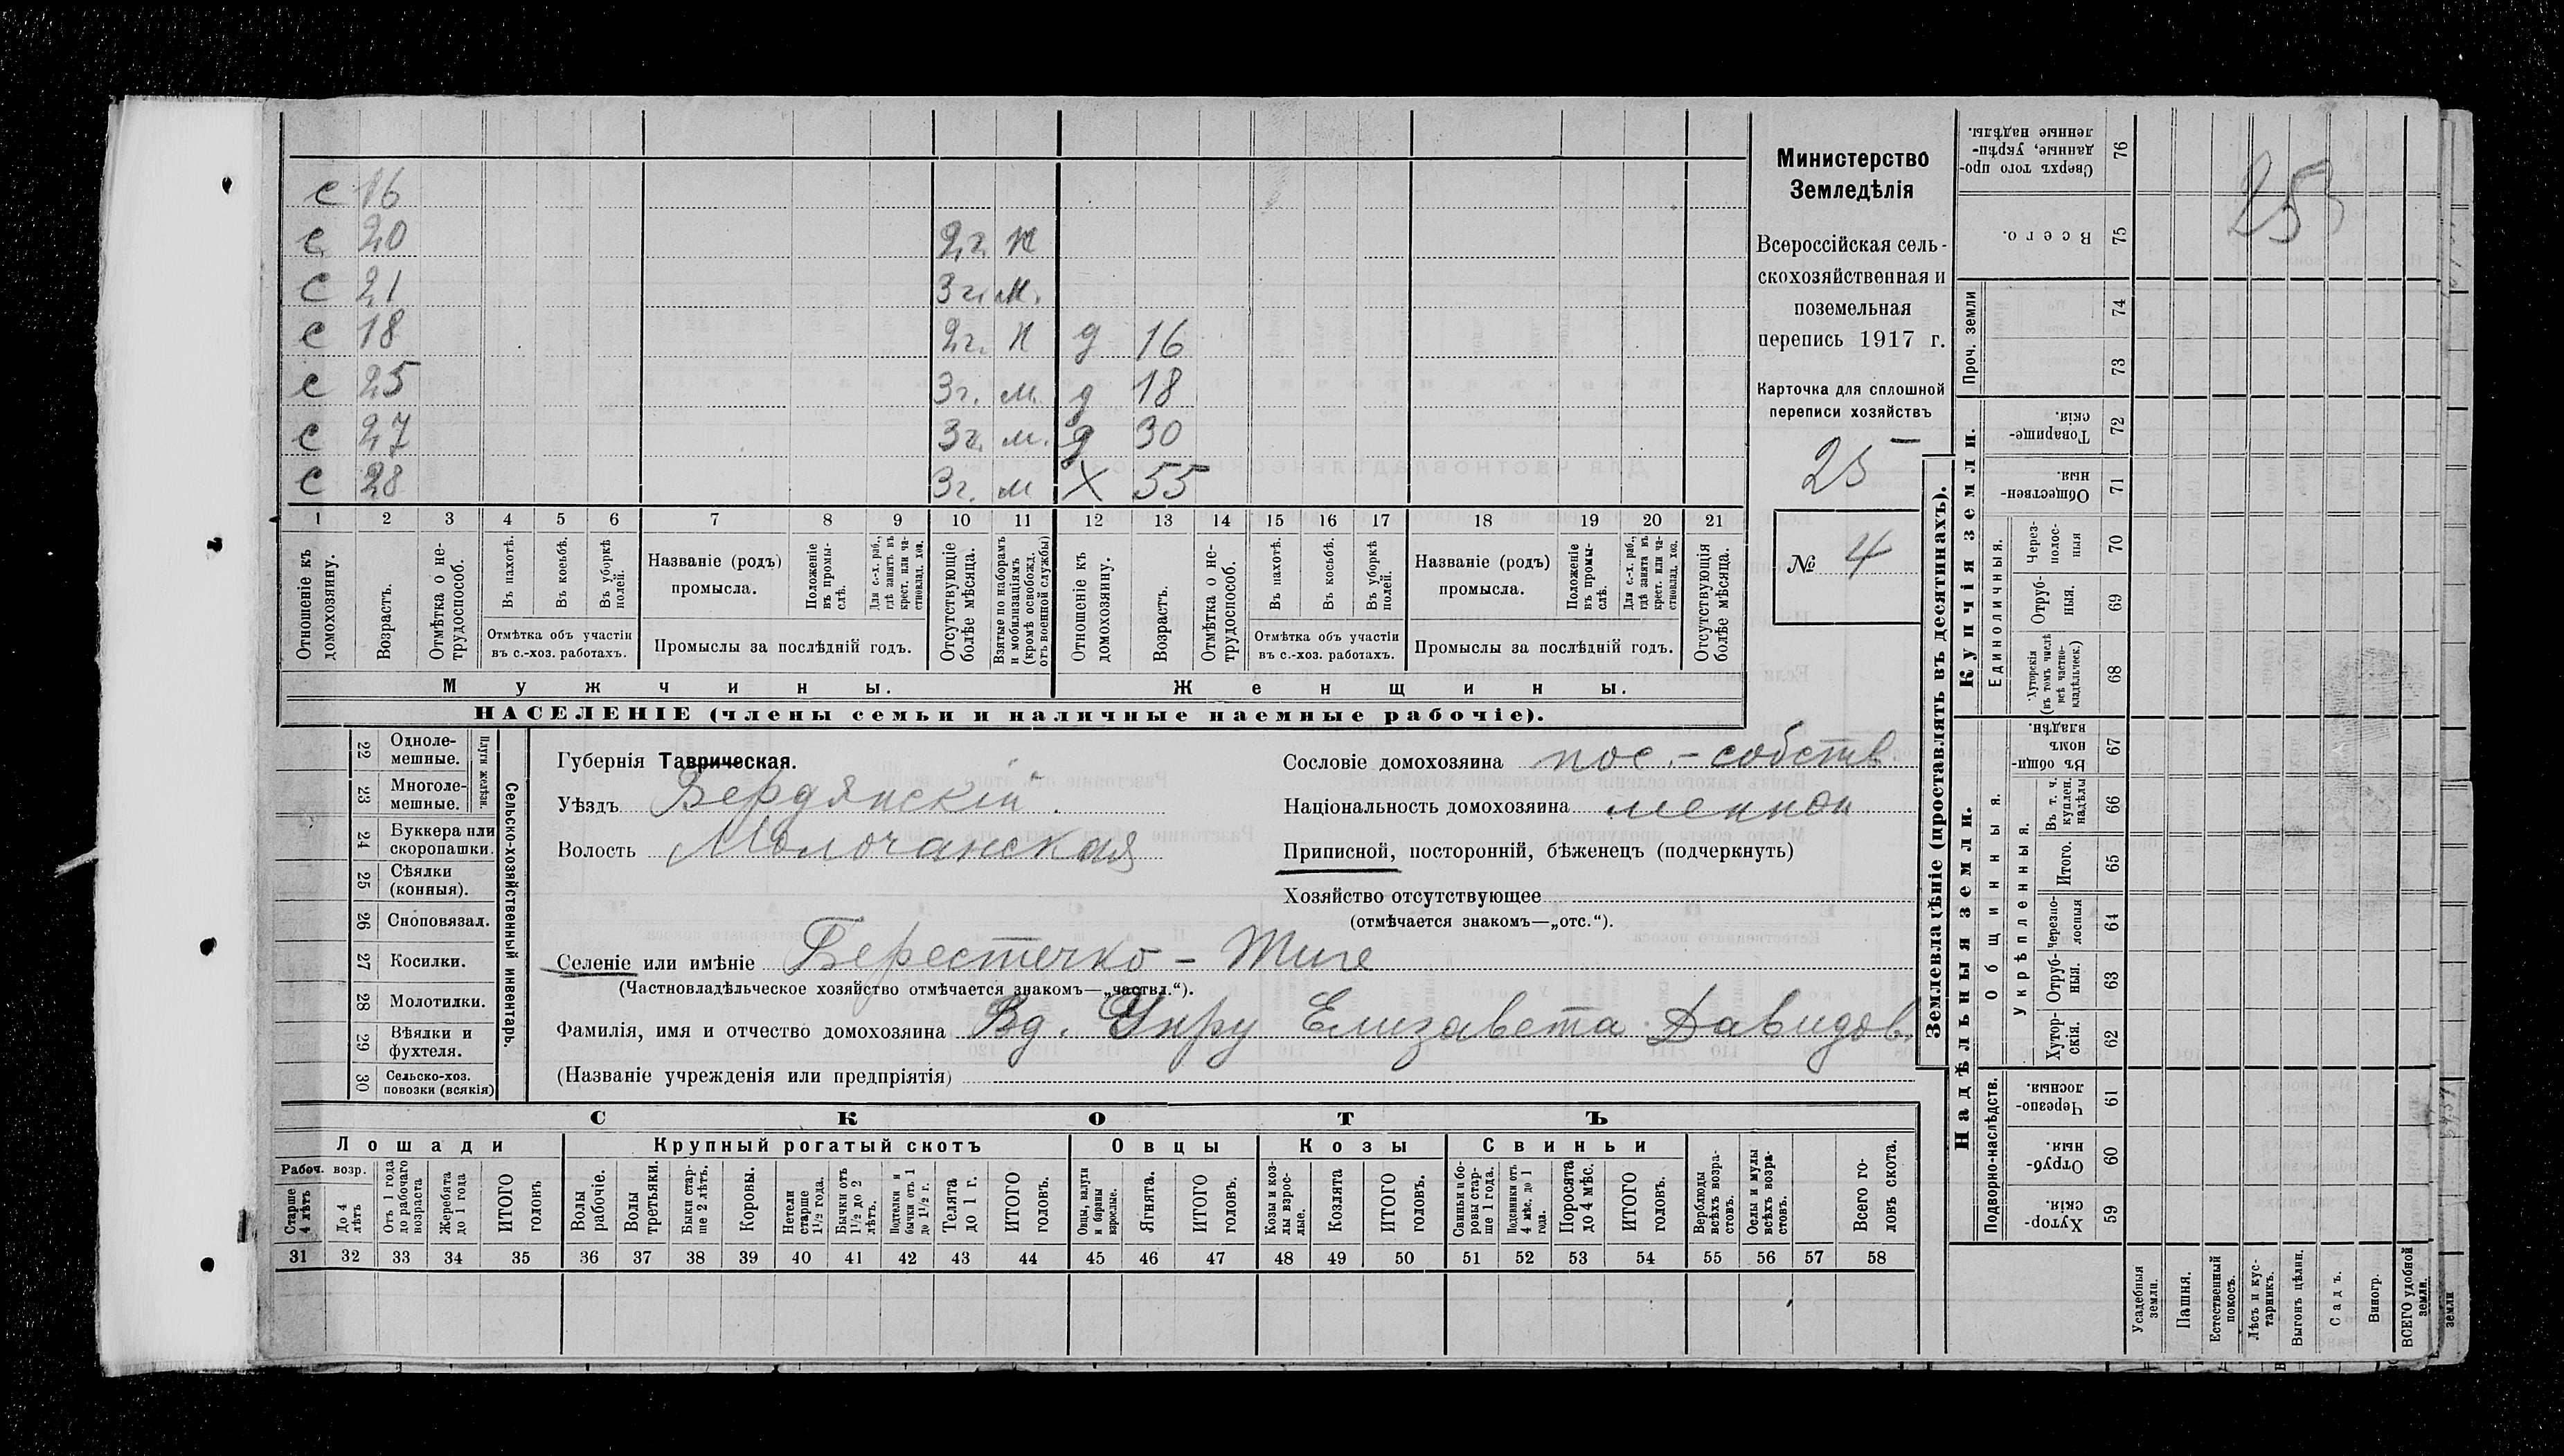 с 16
с 20 2г. н
с 21 3г. м.
с 18 2г. н д 16
с 25 3г. м. д 18
с 27 3г. м. д 30
с 28 3г. м Х 55
1 2 3 4 5 6 7 8 9 10 11 12 13 14 15 16 17 18 19 20 21
Отношеніе къ домохозяину.
Возрастъ.
Отмѣтка о нетрудоспособ.
Въ пахотѣ.
Въ косьбѣ.
Въ уборкѣ полей.
Отмѣтка объ участіи
въ с.-хоз. работахъ.
Названіе (родъ)
промысла.
Положеніе въ промыслѣ.
Для с.-х. раб., гдѣ занятъ въ крест. или частновлад. хоз.
Промыслы за послѣдній годъ.
Отсутствующіе болѣе мѣсяца.
Взятые по наборамъ и мобилизаціямъ (кромѣ освобожд. отъ военной службы)
Отношеніе къ домохозяину.
Возрастъ.
Отмѣтка о нетрудоспособ.
Въ пахотѣ.
Въ косьбѣ.
Въ уборкѣ полей.
Отмѣтка объ участіи
въ с.-хоз. работахъ.
Названіе (родъ)
промысла.
Положеніе въ промыслѣ.
Для с.-х. раб., гдѣ занята въ крест. или частновлад. хоз.
Промыслы за послѣдній годъ.
Отсутствующія болѣе мѣсяца.
Мужчины. Женщины.
НАСЕЛЕНІЕ (члены семьи и наличные наемные рабочіе).
Министерство
Земледѣлія
Всероссійская сель-
скохозяйственная и
поземельная
перепись 1917 г.
Карточка для сплошной
переписи хозяйствъ
25
№ 4
22 Одноле-
мешные.
23 Многоле-
мешные.
Плуги желѣзн.
24 Буккера или
скоропашки.
25 Сѣялки
(конныя).
26 Сноповязал.
27 Косилки.
28 Молотилки.
29 Вѣялки и
фухтеля.
30 Сельско-хоз.
повозки (всякія)
Сельско-хозяйственный инвентарь.
Губернія Таврическая.
Уѣздъ Бердянскій.
Волость Молочанская
Сословіе домохозяина пос.-собств.
Національность домохозяина меннон
Приписной, посторонній, бѣженецъ (подчеркнуть)
Хозяйство отсутствующее
(отмѣчается знакомъ—„отс.“).
Селеніе или имѣніе Берестечко - Тиге
(Частновладѣльческое хозяйство отмѣчается знакомъ—„частвл.“).
Фамилія, имя и отчество домохозяина Вд. Унру Елизавета Давидов.
(Названіе учрежденія или предпріятія)
СКОТЪ
Лошади Крупный рогатый скотъ Овцы Козы Свиньи
Рабоч. возр.
Старше 4 лѣтъ
До 4 лѣтъ
Отъ 1 года до рабочаго возраста
Жеребята до 1 года
ИТОГО головъ
Волы рабочіе.
Волы третьяки.
Быки старше 2 лѣтъ.
Коровы.
Нетели старше 1½ года.
Бычки отъ 1½ до 2 лѣтъ.
Подтелки и бычки отъ 1 до 1½ г.
Телята до 1 г.
ИТОГО головъ.
Овцы, валухи и бараны взрослые.
Ягнята.
ИТОГО головъ.
Козы и козлы взрослые.
Козлята
ИТОГО головъ.
Свиньи и боровы старше 1 года.
Подсвинки отъ 4 мѣс. до 1 года.
Поросята до 4 мѣс.
ИТОГО головъ.
Верблюды всѣхъ возрастовъ.
Ослы и мулы всѣхъ возрастовъ.
Всего головъ скота.
31 32 33 34 35 36 37 38 39 40 41 42 43 44 45 46 47 48 49 50 51 52 53 54 55 56 57 58
Землевладѣніе (проставлять въ десятинахъ).
Надѣльныя земли. Купчія земли.
Подворно-наслѣдств.
Общинныя.
Укрѣпленныя.
Единоличныя.
Проч. земли
Сверхъ того проданные, укрѣпленные надѣлы. 76
Всего. 75
74
73
Товарищескія. 72
Общественныя. 71
Черезполосныя 70
Отрубныя. 69
Хуторскія (въ томъ числѣ всѣ частновладѣльческ.) 68
Въ общинномъ владѣн. 67
Въ т. ч. куплен. надѣлы 66
Итого. 65
Черезполосныя 64
Отрубныя. 63
Хуторскія. 62
Черезполосныя. 61
Отрубныя. 60
Хуторскія. 59
Усадебныя земли.
Пашня.
Естественный покосъ.
Лѣсъ и кустарникъ.
Выгонъ цѣлин.
Садъ.
Виногр.
ВСЕГО удобной земли.
земли
253